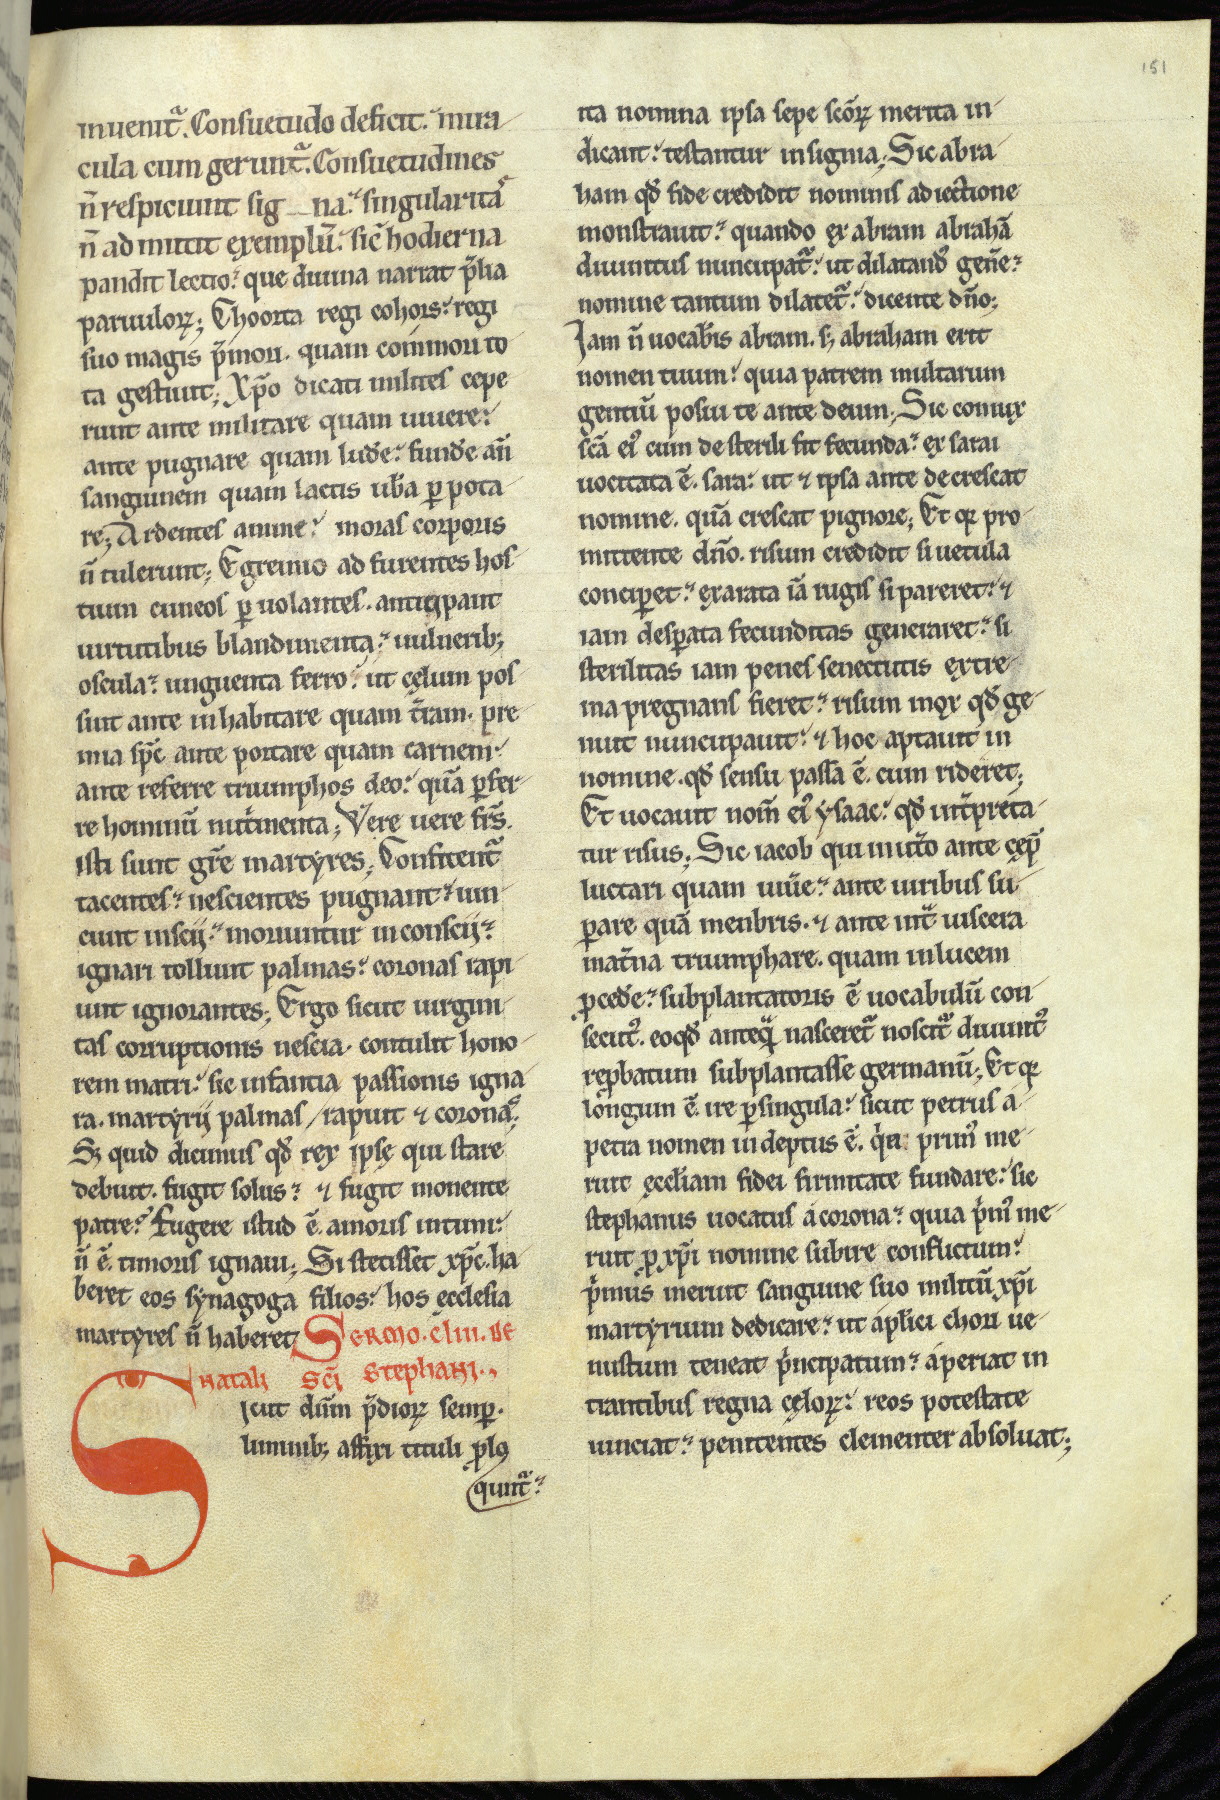 151
inuenit᷑. Consuetudo deficit. mira
cula cum gerunt᷑. Consuetudines
n̄ respiciunt sig na. singularita᷑
n̄ admittit exemplū. sic̄ hodierna
pandit lectio. que diuina narrat p̄lia
paruuloꝝ; Choorta regi cohors. regi
suo magis p̄mori. quam commori to
ta gestiuit; Xp̄o dicati milites cepe
runt ante militare quam uiuere.
ante pugnare quam lud̄e. fund̄e an̄
sanguinem quam lactis ub̄a ꝑpota
re; Ardentes anime. moras corporis
n̄ tulerunt; E gremio ad furentes hos
tium cuneos ꝑuolantes. anticipant
uirtutibus blandimenta. uulneribꝫ
oscula. unguenta ferro. ut cęlum pos
sint ante inhabitare quam t̄ram. pre
mia sp̄c ante portare quam carnem.
ante referre triumphos deo. quā ꝑfer
re hominū nut̄menta; Vere uere fr̄s.
isti sunt gr̄e martyres; Confitent᷑
tacentes. nescientes pugnant. uin
cunt inscij. moriuntur inconscij.
ignari tollunt palmas. coronas rapi
unt ignorantes; Ergo sicut uirgini
tas corruptionis nescia. contulit hono
rem matri. sic infantia passionis igna
ra. martyrij palmas rapuit ⁊ corona᷒;
Sꝫ quid dicimus qđ rex ipsę qui stare
debuit. fugit solus. ⁊ fugit monente
patre. Fugere istud ē amoris intimi.
n̄ ē timoris ignaui; Si stetisset xp̄c. ha
beret eos synagoga filios. hos ęcclesia
martyres n̄ haberet; Sermo .cliii. de
natali sc̄i stephani.
Sicut dn̄m p̄dioꝝ semꝑ.
luminibꝫ affixi tituli ꝓlo
qunt᷑.
ita nomina ipsa sepe sc̄oꝝ merita in
dicant. testantur insignia; Sic abra
ham qđ fide credidit nominis adiectione
monstrauit. quando ex abram abrahā
diuinitus nuncupat᷑. ut dilatand᷒ gen̄e.
nomine tantum dilatet᷑. dicente dn̄o;
Iam n̄ uocab̄is abram. sꝫ abraham erit
nomen tuum. quia patrem multarum
gentiū posui te ante deum; Sic coniux
sc̄a ei᷒ cum de sterili fit fecunda. ex sarai
uocitata ē. sara. ut ⁊ ipsa ante decrescat
nomine. quā crescat pignore; Et qꝛ pro
mittente dn̄o. risum credidit si uetula
conciꝑet. exarata iā rugis si pareret. ⁊
iam desꝑata fecunditas generaret. si
sterilitas iam penes senectutis extre
ma pregnans fieret. risum mox qđ ge
nuit nuncupauit. ⁊ hoc aptauit in
nomine. qđ sensu passa ē. cum rideret;
Et uocauit nom̄ ei᷒ ysaac. qđ int̄preta
tur risus; Sic iacob qui mit̄o ante cęp̄
luctari quam uiu̅e. ante uiribus su
ꝑare quā menbris. ⁊ ante int̄ uiscera
mat̄na triumphare. quam in lucem
ꝓced̄e. subplantatoris ē uocabulū con
secut᷒. eoqđ anteq̄ nasceret᷑ noscit᷑ diuinit᷒
reꝓbatum subplantasse germanū; Et qꝛ
longum ē. ire ꝑ singula. sicut petrus a
petra nomen indeptus ē. qͥa prim᷒ me
ruit ęccl̄iam fidei firmitate fundare. sic
stephanus uocatus a corona. quia pͥm᷒ me
ruit ꝓ xp̄i nomine subire conflictum.
pͥmus meruit sanguine suo militū xp̄i
martyrium dedicare. ut apl̄ici chori ue
nustum teneat pͥncipatum. aperiat in
trantibus regna cęloꝝ. reos potestate
uinciat. penitentes clementer absoluat;